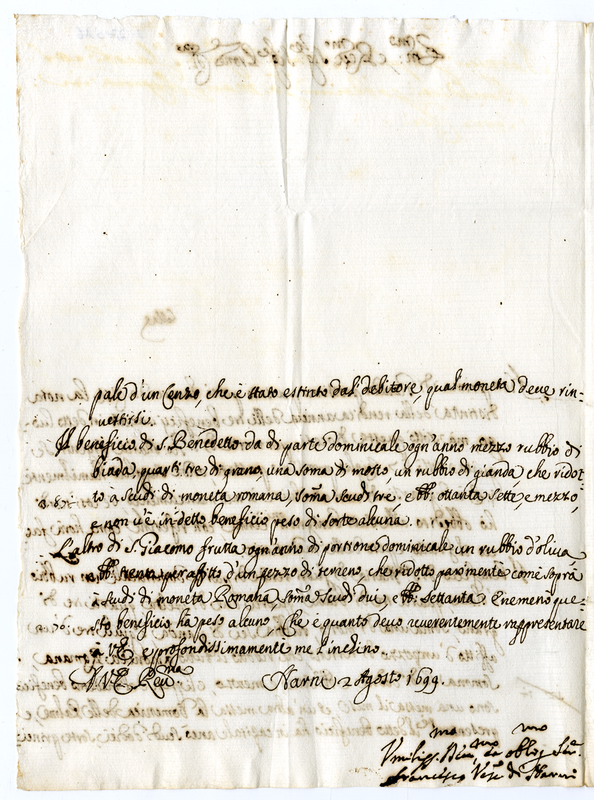 pale d'un Censo, che è stato estinto dal debitore, qual moneta deve rin-
vertirsi.
Il beneficio di S. Benedetto da di parte dominicale ogn'anno mezzo rubbio di
biada, quarti tre di grano, una soma di mosto, un rubbio di gianda che ridot-
to a scudi di moneta romana, soma scudi tre, e bb: ottanta sette, e mezzo,
e non v'è in detto beneficio peso di sorte alcuna.
L'altro di S. Giacomo frutta ogn'anno di portione dominicale un rubbio d'oliva,
bb: trenta per affitto d'un pezzo di terreno, che ridotto parimente come sopra
à scudi di moneta Romana, soma scudi dui, e bb: settanta. E nemeno que-
sto beneficio hà peso alcuno. Che è quanto devo riverentemente rappresentare
à V.E. e profondissimamente me l'inchino.
Di V.E. Rev.ma
Narni 2 Agosto 1699.
Umiliss. Div.mo ed obblig.mo Ser.
Francesco Vesc.o di Narni